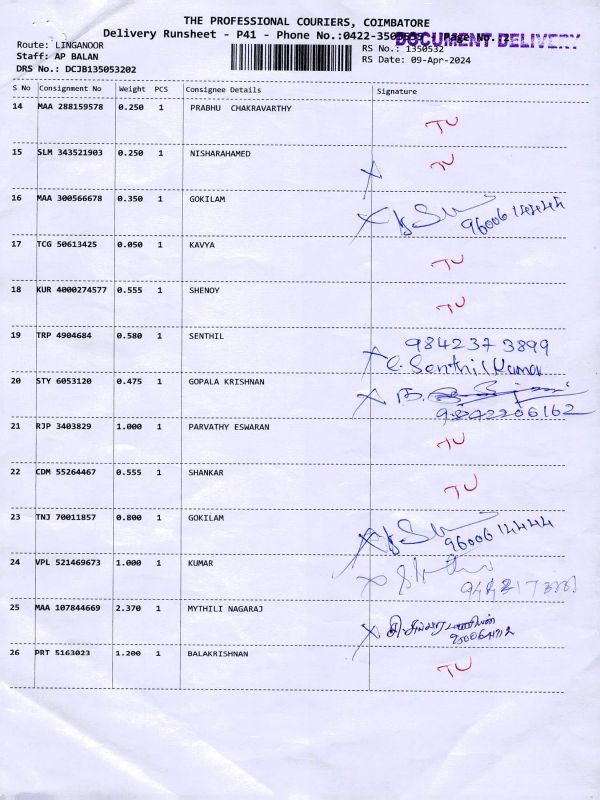 THE PROFESSIONAL COURIERS, COIMBATORE
Delivery Runsheet - P41 - Phone No.:0422-350 Page No. 2
DOCUMENT DELIVERY
Route: LINGANOOR RS No.: 1350532
Staff: AP BALAN RS Date: 09-Apr-2024
DRS No.: DCJB135053202
S No Consignment No Weight PCS Consignee Details Signature
14 MAA 288159578 0.250 1 PRABHU CHAKRAVARTHY
TU
15 SLM 343521903 0.250 1 NISHARAHAMED
TU
16 MAA 300566678 0.350 1 GOKILAM
9600614444
17 TCG 50613425 0.050 1 KAVYA
TU
18 KUR 4000274577 0.555 1 SHENOY
TU
19 TRP 4904684 0.580 1 SENTHIL
9842373899
C. Senthil Kumar
20 STY 6053120 0.475 1 GOPALA KRISHNAN
21 RJP 3403829 1.000 1 PARVATHY ESWARAN
TU
22 CDM 55264467 0.555 1 SHANKAR
TU
23 TNJ 70011857 0.800 1 GOKILAM
9600614444
24 VPL 521469673 1.000 1 KUMAR
25 MAA 107844669 2.370 1 MYTHILI NAGARAJ
26 PRT 5163023 1.200 1 BALAKRISHNAN
TU